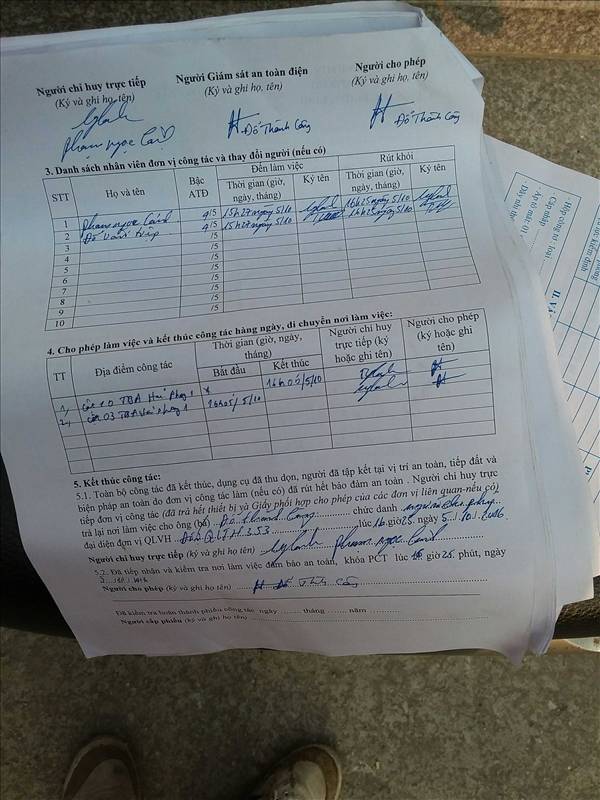 Người chỉ huy trực tiếp Người Giám sát an toàn điện Người cho phép
(Ký và ghi họ, tên) (Ký và ghi họ, tên) (Ký và ghi họ, tên)
Phạm Ngọc Đỗ Thành Công Đỗ Thành Công
3. Danh sách nhân viên đơn vị công tác và thay đổi người (nếu có)
STT Họ và tên Bậc ATĐ Đến làm việc Rút khỏi
Thời gian (giờ, ngày, tháng) Ký tên Thời gian (giờ, ngày, tháng) Ký tên
1 Phạm Ngọc 4/5 15h27 ngày 5/10 16h25 ngày 5/10
2 Đỗ Văn 4/5 15h27 ngày 5/10 16h25 ngày 5/10
3 /5
4 /5
5 /5
6 /5
7 /5
8 /5
9 /5
10 /5
4. Cho phép làm việc và kết thúc công tác hàng ngày, di chuyển nơi làm việc:
TT Địa điểm công tác Thời gian (giờ, ngày, tháng) Người chỉ huy trực tiếp (ký hoặc ghi tên) Người cho phép (ký hoặc ghi tên)
Bắt đầu Kết thúc
1, TBA 1 16h05/5/10
2, 03 TBA 1 16h05/5/10
5. Kết thúc công tác:
5.1. Toàn bộ công tác đã kết thúc, dụng cụ đã thu dọn, người đã tập kết tại vị trí an toàn, tiếp đất và
biện pháp an toàn do đơn vị công tác làm (nếu có) đã rút hết bảo đảm an toàn . Người chỉ huy trực
tiếp đơn vị công tác (đã trả hết thiết bị và Giấy phối hợp cho phép của các đơn vị liên quan-nếu có)
trả lại nơi làm việc cho ông (bà) Đỗ Thành Công chức danh người cho phép
đại diện đơn vị QLVH Đội QLTH 353 lúc 16 giờ 25 ngày 5 / 10 / 2016
Người chỉ huy trực tiếp (ký và ghi họ tên) Phạm Ngọc
5.2. Đã tiếp nhận và kiểm tra nơi làm việc đảm bảo an toàn, khóa PCT lúc giờ 25 phút, ngày
5 / 10 / 2016
Người cho phép (ký và ghi họ tên) Đỗ Thành Công
Đã kiểm tra hoàn thành phiếu công tác ngày tháng năm
Người cấp phiếu (ký và ghi họ tên)